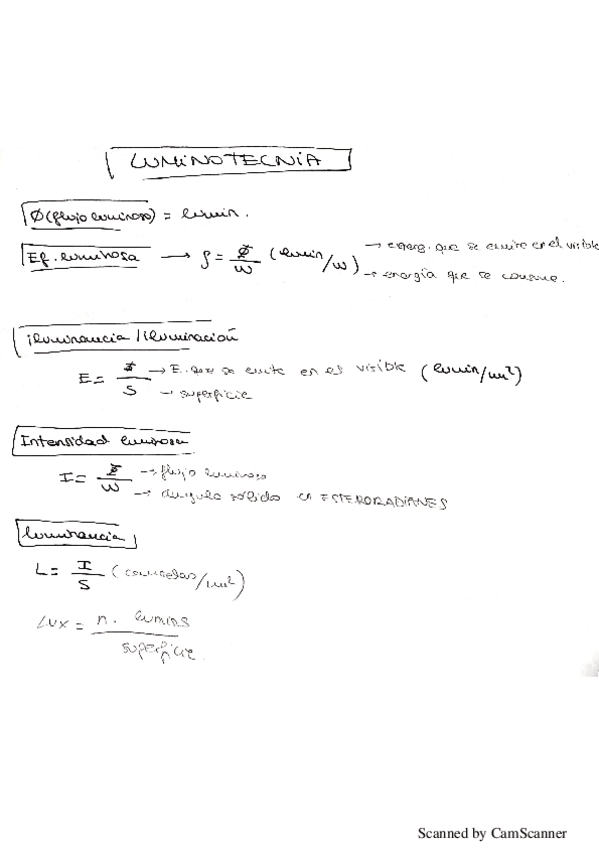 LUMINOTECNIA
Ø (flujo luminoso) = lumin.
Ef. luminosa → ρ = Φ/W (lumin/W) → energ. que se emite en el visible
→ energía que se consume.
iluminancia / iluminación
E = Φ/S → E. que se emite en el visible (lumin/m²)
→ superficie
Intensidad luminosa
I = Φ/W → flujo luminoso
→ ángulo sólido en ESTERORADIANES
luminancia
L = I/S (candelas/m²)
LUX = n. lumins
superficie.
Scanned by CamScanner